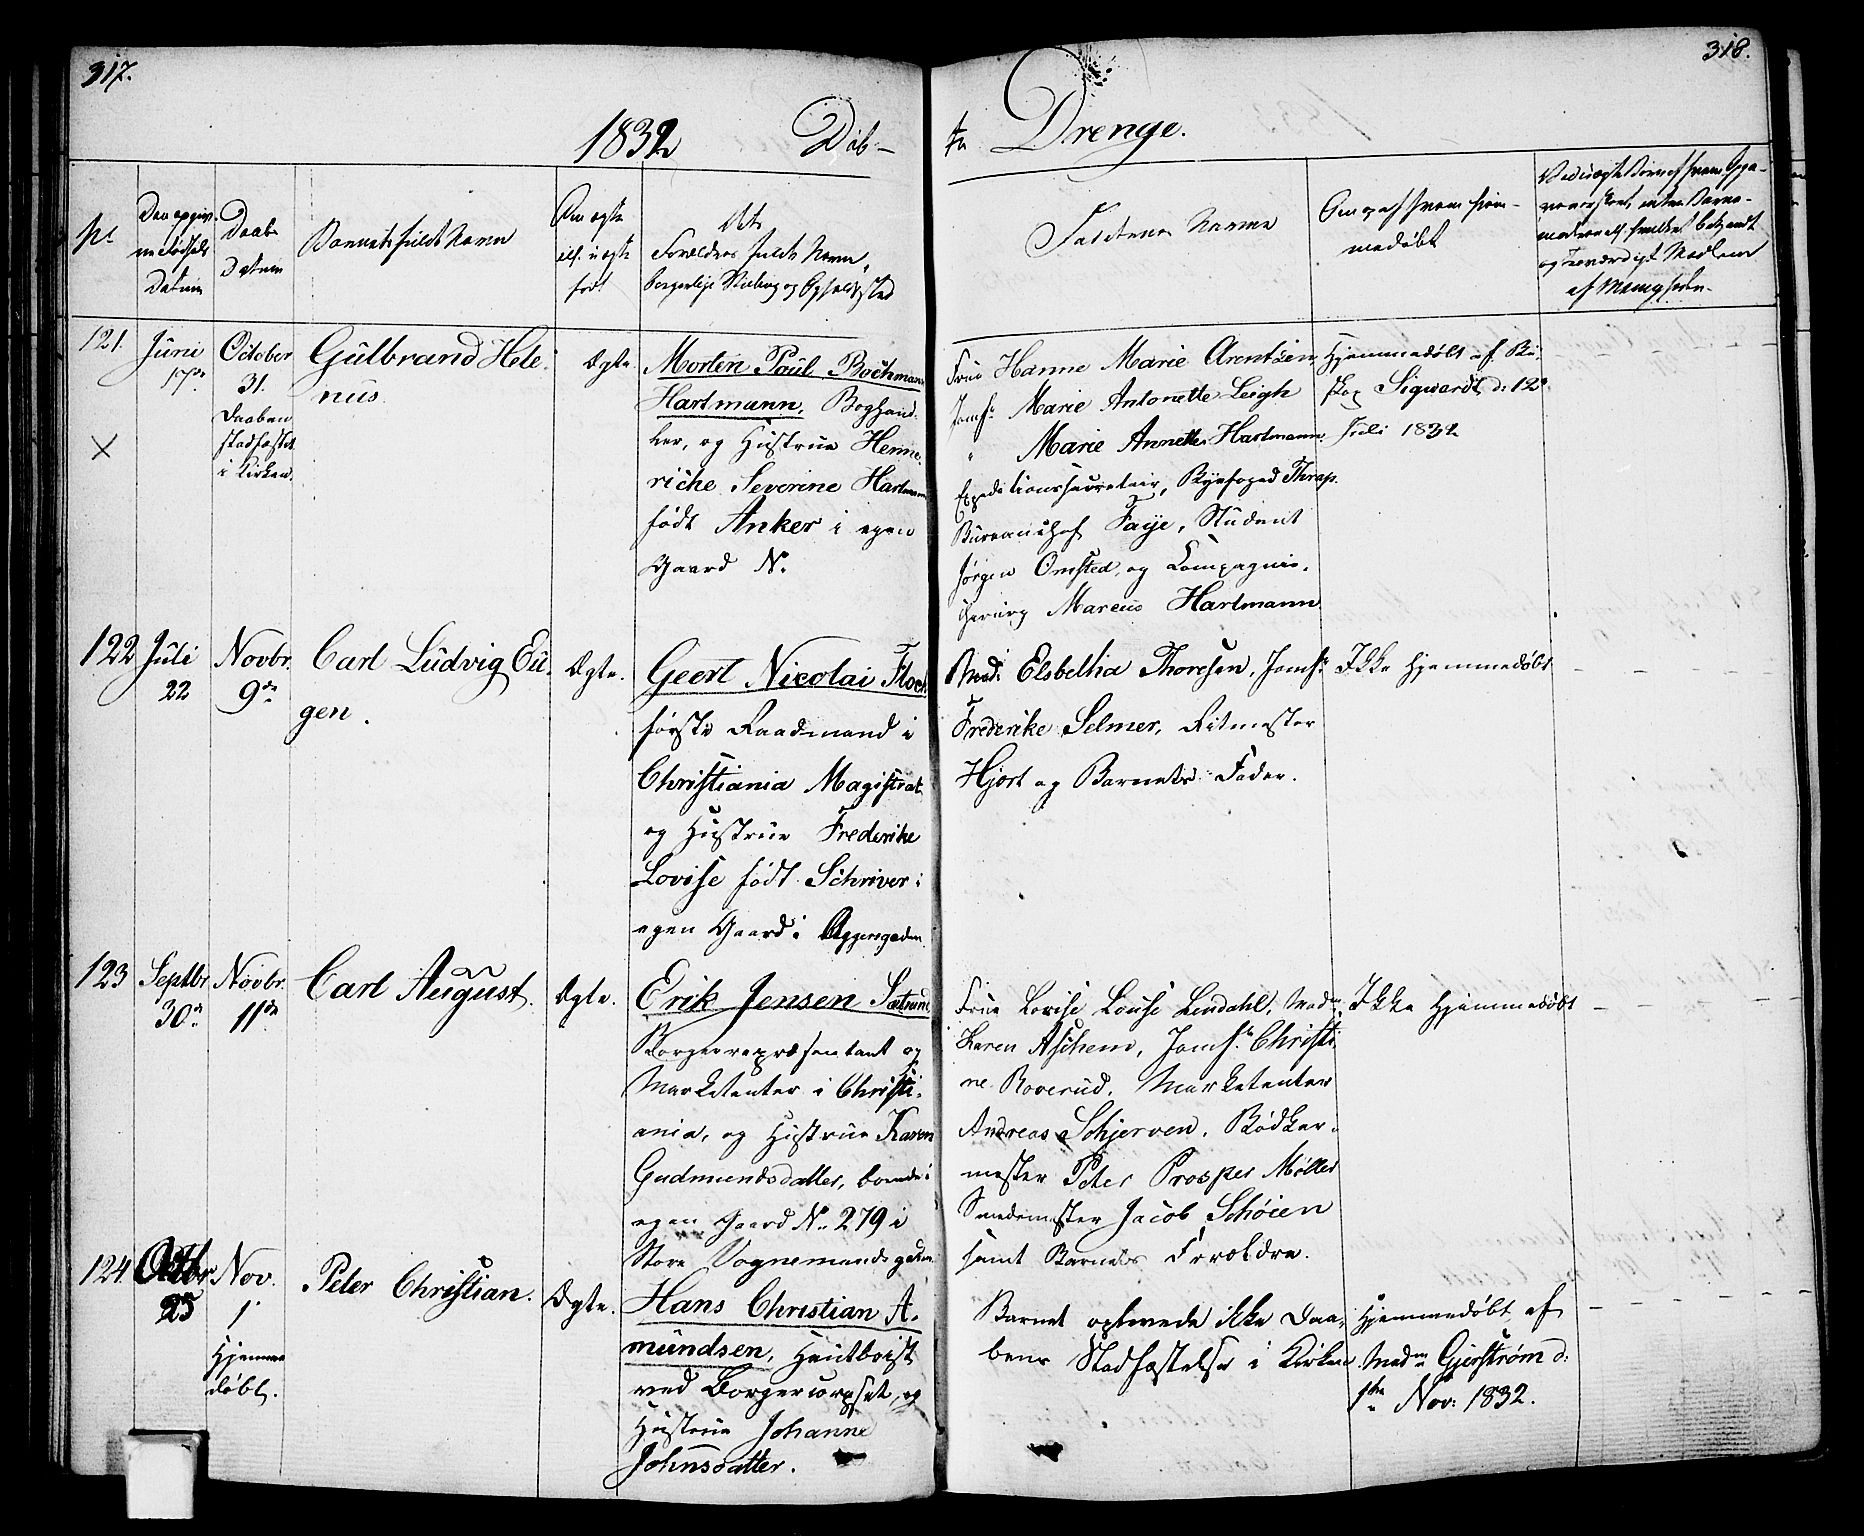 317.
318.
1832 Døb-
te Drenge.
No
Den opgiv-
ne Fødsels
Datum
Daabs
Datum
Barnets fulde Navn
Om ægte
ell. uægte
født
Forældres fulde Navn,
borgerlige Stilling og Opholdssted
Faddernes Navne
Om og af hvem hjem-
medøbt
af Menigheden.
121.
Juni
17de
October
31.
Daaben
stadfæstet
i Kirken.
Gulbrand Hele-
nus.
Ægte.
Morten Poul Bachmann
Hartmann, Boghand-
ler, og Hustrue Henne-
riche Severine Hartmann
født Anker i egen
Gaard N.
Frue Hanne Marie Arentzen,
Jomfr. Marie Antonette Leigh
" Marie Annette Hartmann
Expeditionssecretair, Byefoged Thrap.
Bureauchef Faye, Student
Jørgen Omsted, og Compagnie-
chirurg Marcus Hartmann
Hjemmedøbt af Bi-
skop Sigwardt d: 12te
Juli 1832
122
Juli
22
Novbr.
9de
Carl Ludvig Eu-
gen.
Ægte.
Geert Nicolai Floch
første Raadmand i
Christiania Magistrat
og Hustrue Frederike
Lovise født Schriver i
egen Gaard i Aggersgaden.
Mad. Elsbetha Thoresen, Jomfr.
Frederike Selmer, Ritmester
Hjort og Barnets Fader.
Ikke hjemmedøbt
123
Septbr
30te
Novbr.
11de
Carl August.
Ægte.
Erik Jensen Sætrang
Borgerrepræsentant og
Marketenter i Christi-
ania, og Hustrue Karen
Gudmundsdatter, boende i
egen Gaard No. 279 i
Store Vognemandsgaden
Frue Lovise Louise Lindahl, Madm.
Karen Aschem, Jomfr. Christi-
ne Roverud, Marketenter
Andreas Schjerven, Bødker-
mester Peter Prosper Møller
Smedemester Jacob Schøien
samt Barnets Forældre.
Ikke hjemmedøbt
124
Octbr
25
Nov.
1
Hjemme
døbt.
Peter Christian.
Ægte.
Hans Christian A-
mundsen, Hautboist
ved Borgercorpset, og
Hustrue Johanne
Johnsdatter.
Barnet oplevede ikke Daa-
bens Stadfæstelse i Kirken.
Hjemmedøbt af
Madm Gjerstrøm d:
1ste Nov: 1832.